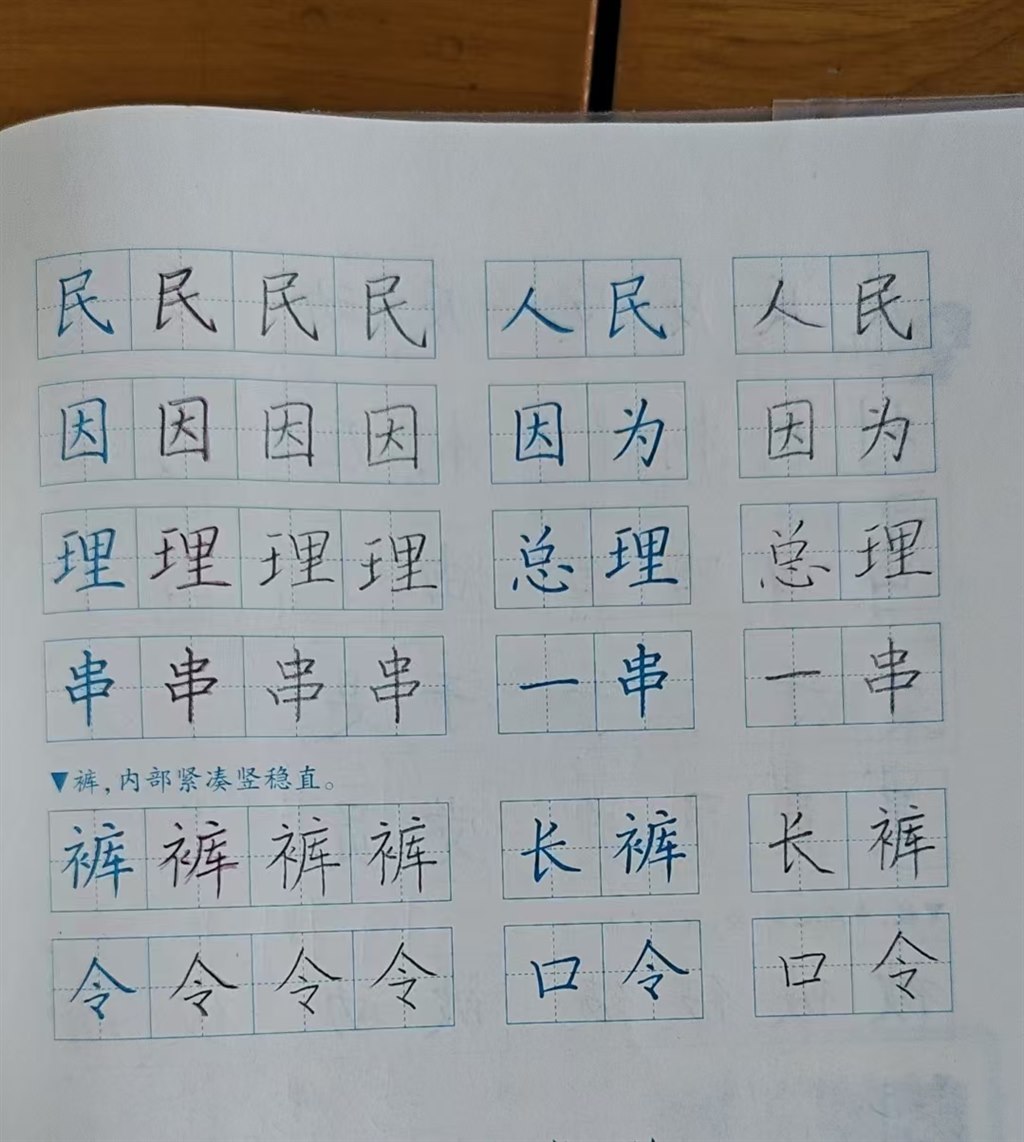 民民民民 人民 人民
因因因因 因为 因为
理理理理 总理 总理
串串串串 一串 一串
▼裤,内部紧凑竖稳直。
裤裤裤裤 长裤 长裤
令令令令 口令 口令